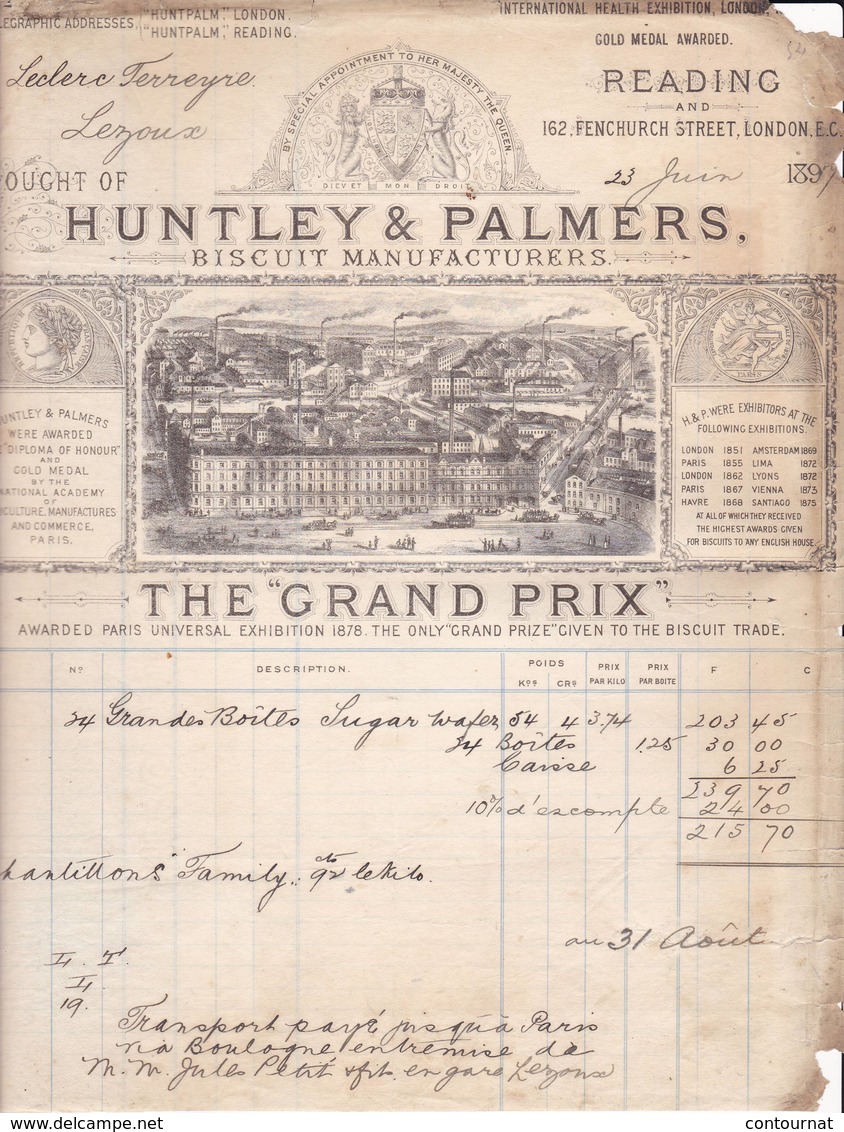 LEGRAPHIC ADDRESSES, "HUNTPALM," LONDON.
"HUNTPALM," READING.
INTERNATIONAL HEALTH EXHIBITION, LONDON,
GOLD MEDAL AWARDED.
READING
AND
162, FENCHURCH STREET, LONDON, E.C.
Leclerc Terreyre
Lezoux
BY SPECIAL APPOINTMENT TO HER MAJESTY THE QUEEN
DIEV ET MON DROIT
OUGHT OF
23 Juin 1897
HUNTLEY & PALMERS,
BISCUIT MANUFACTURERS.
PARIS
UNTLEY & PALMERS
WERE AWARDED
"DIPLOMA OF HONOUR"
AND
GOLD MEDAL
BY THE
NATIONAL ACADEMY
OF
ICULTURE, MANUFACTURES
AND COMMERCE,
PARIS.
H. & P. WERE EXHIBITORS AT THE
FOLLOWING EXHIBITIONS.
LONDON 1851 AMSTERDAM 1869
PARIS 1855 LIMA 1872
LONDON 1862 LYONS 1872
PARIS 1867 VIENNA 1873
HAVRE 1868 SANTIAGO 1875
AT ALL OF WHICH THEY RECEIVED
THE HIGHEST AWARDS GIVEN
FOR BISCUITS TO ANY ENGLISH HOUSE.
THE "GRAND PRIX"
AWARDED PARIS UNIVERSAL EXHIBITION 1878. THE ONLY "GRAND PRIZE" GIVEN TO THE BISCUIT TRADE.
No DESCRIPTION. POIDS KOS GRS PRIX PAR KILO PRIX PAR BOITE F C
24 Grandes Boîtes Sugar Wafer 54 4 3.74 203 45
24 Boîtes 1.25 30 00
Caisse 6 25
239 70
10% d'escompte 24 00
215 70
hantillons "Family" 92 cts le kilo.
au 31 Août
L. T.
L
19.
Transport payé jusqu'à Paris
via Boulogne, entremise de
M. M. Jules Petit & fils. en gare Lezoux
www.delcampe.net
contournat